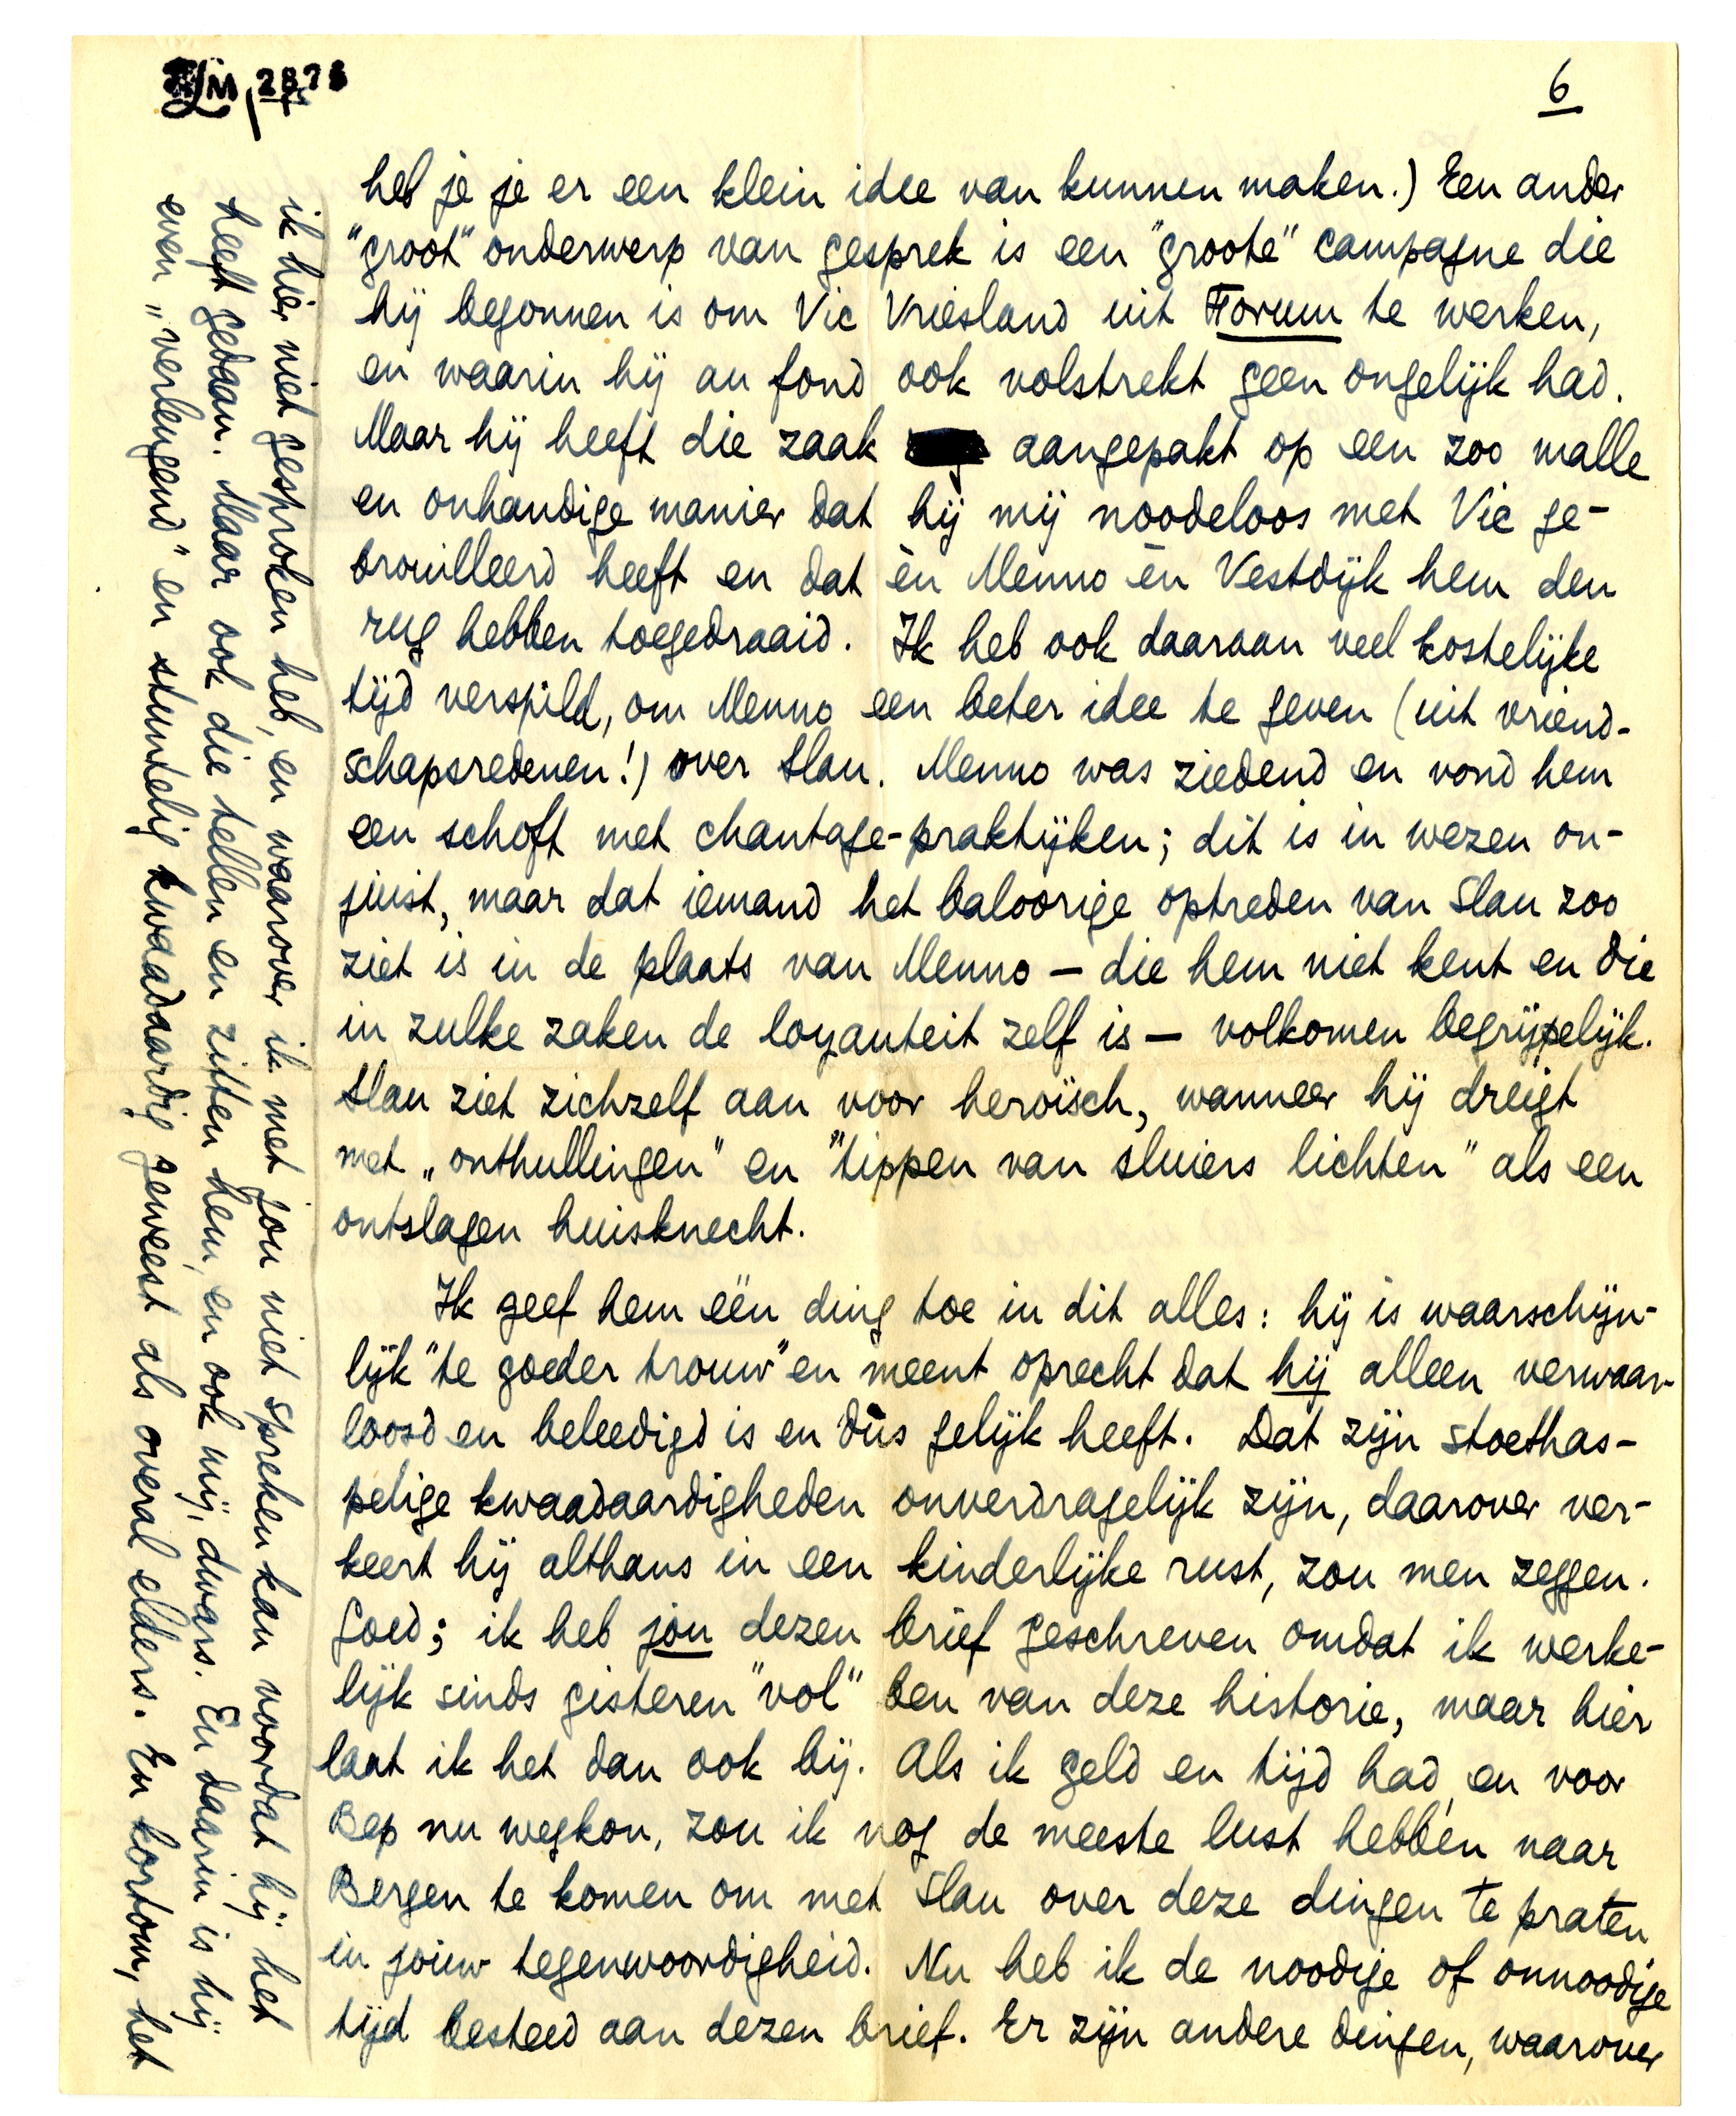 6
heb je je er een klein idee van kunnen maken.) Een ander
"groot" onderwerp van gesprek is een "groote" campagne die
hij begonnen is om Vic Vriesland uit Forum te werken,
en waarin hij au fond ook volstrekt geen ongelijk had.
Maar hij heeft die zaak aangepakt op een zoo malle
en onhandige manier dat hij mij noodeloos met Vic ge-
brouilleerd heeft en dat èn Menno èn Vestdijk hem den
rug hebben toegedraaid. Ik heb ook daaraan veel kostelijke
tijd verspild, om Menno een beter idee te geven (uit vriend-
schapsredenen!) over Slau. Menno was ziedend en vond hem
een schoft met chantage-praktijken; dit is in wezen on-
juist, maar dat iemand het baloorige optreden van Slau zoo
ziet is in de plaats van Menno — die hem niet kent en die
in zulke zaken de loyauteit zelf is — volkomen begrijpelijk.
Slau ziet zichzelf aan voor heroïsch, wanneer hij dreigt
met „onthullingen" en "tippen van sluiers lichten" als een
ontslagen huisknecht.
Ik geef hem één ding toe in dit alles: hij is waarschijn-
lijk "te goeder trouw" en meent oprecht dat hij alleen verwaar-
loosd en beleedigd is en dùs gelijk heeft. Dat zijn stoethas-
pelige kwaadaardigheden onverdragelijk zijn, daarover ver-
keert hij althans in een kinderlijke rust, zou men zeggen.
Goed; ik heb jou dezen brief geschreven omdat ik werke-
lijk sinds gisteren "vol" ben van deze historie, maar hier
laat ik het dan ook bij. Als ik geld en tijd had, en voor
Bep nu wegkon, zou ik nog de meeste lust hebben naar
Bergen te komen om met Slau over deze dingen te praten
in jouw tegenwoordigheid. Nu heb ik de noodige of onnoodige
tijd besteed aan dezen brief. Er zijn andere dingen, waarover
ik hier niet gesproken heb, en waarover ik met jou niet spreken kan voordat hij het
heeft gedaan. Maar ook die tellen en zitten hem, en ook mij, dwars. En daarin is hij
even „verlengend" en stuntelig kwaadaardig geweest als overal elders. En kortom, het